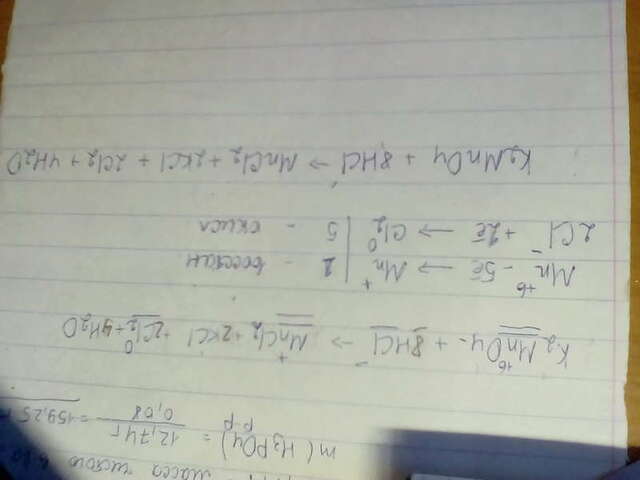 масса чистого
m(H₃PO₄) р-р = 12,74г / 0,08 = 159,25
K₂Mn⁺⁶O₄ + 8HCl⁻ → Mn⁺Cl₂ + 2KCl + 2Cl₂⁰ + 4H₂O
Mn⁺⁶ - 5ē → Mn⁺ | 1 - восстан
2Cl⁻ + 2ē → Cl₂⁰ | 5 - окисл
K₂MnO₄ + 8HCl → MnCl₂ + 2KCl + 2Cl₂ + 4H₂O